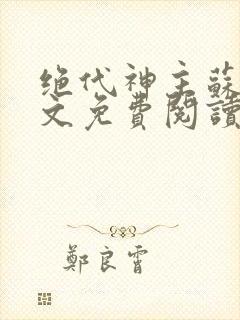 绝代神主蘇
文免費閱讀
鄭良霄